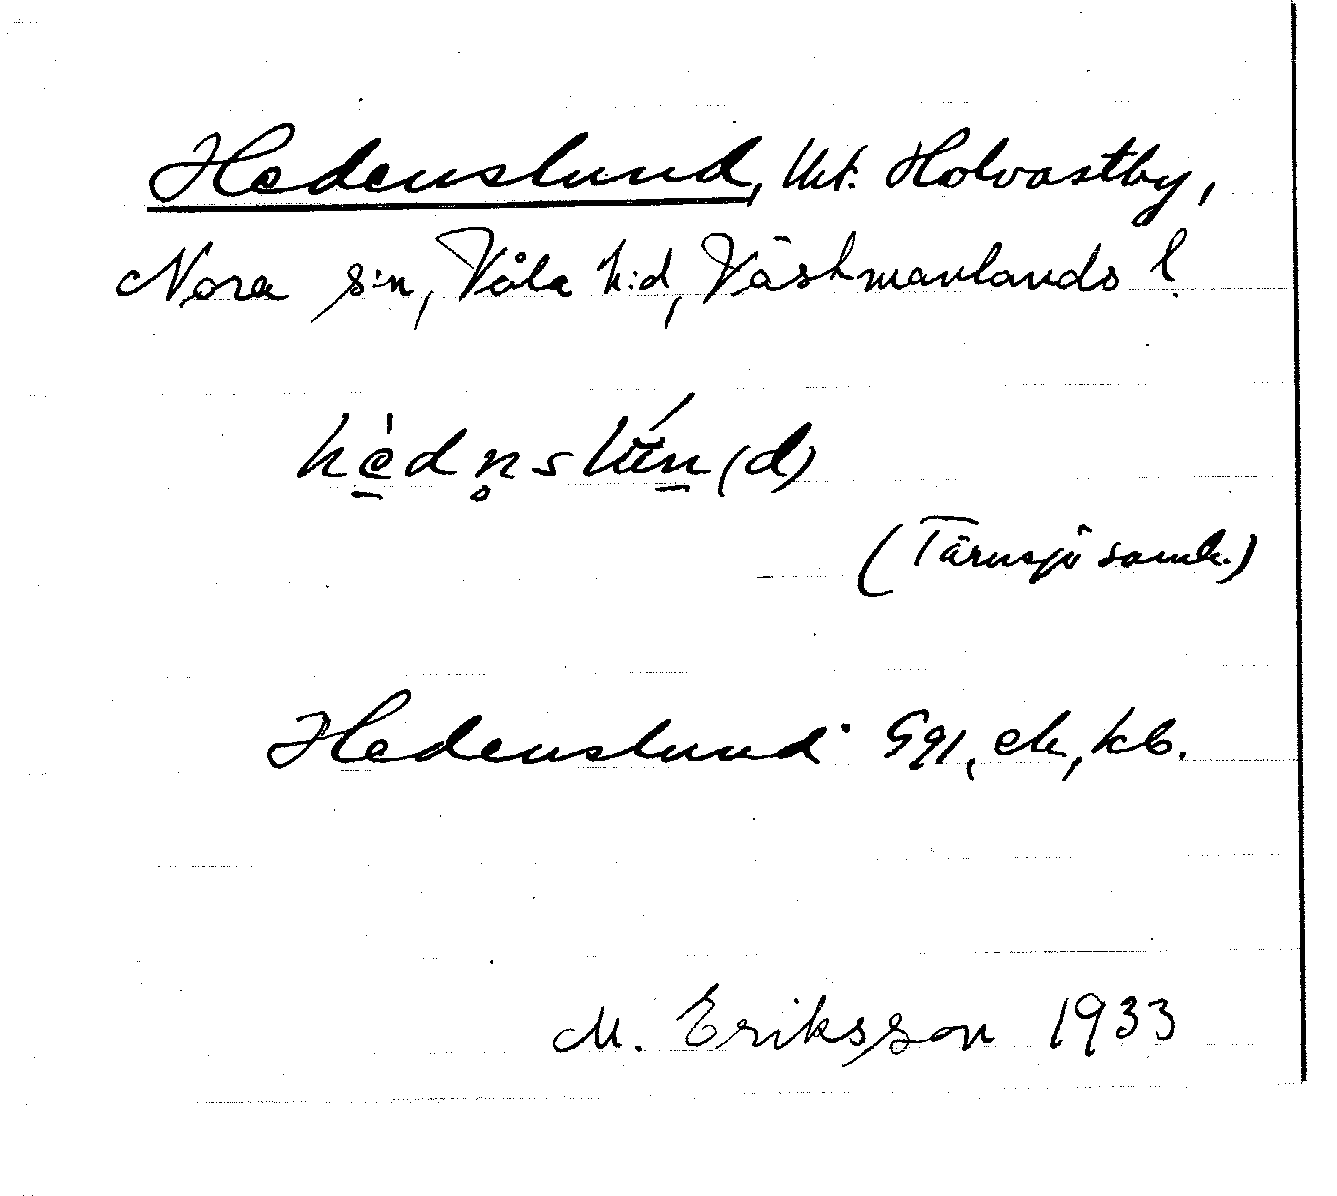 Hedenslund, Ut. Holvastby,
Nora s:n, Våla h:d, Västmanlands l.
(Tärnsjö samh.)
Hedenslund Ggl, ek, kb.
M. Eriksson 1933